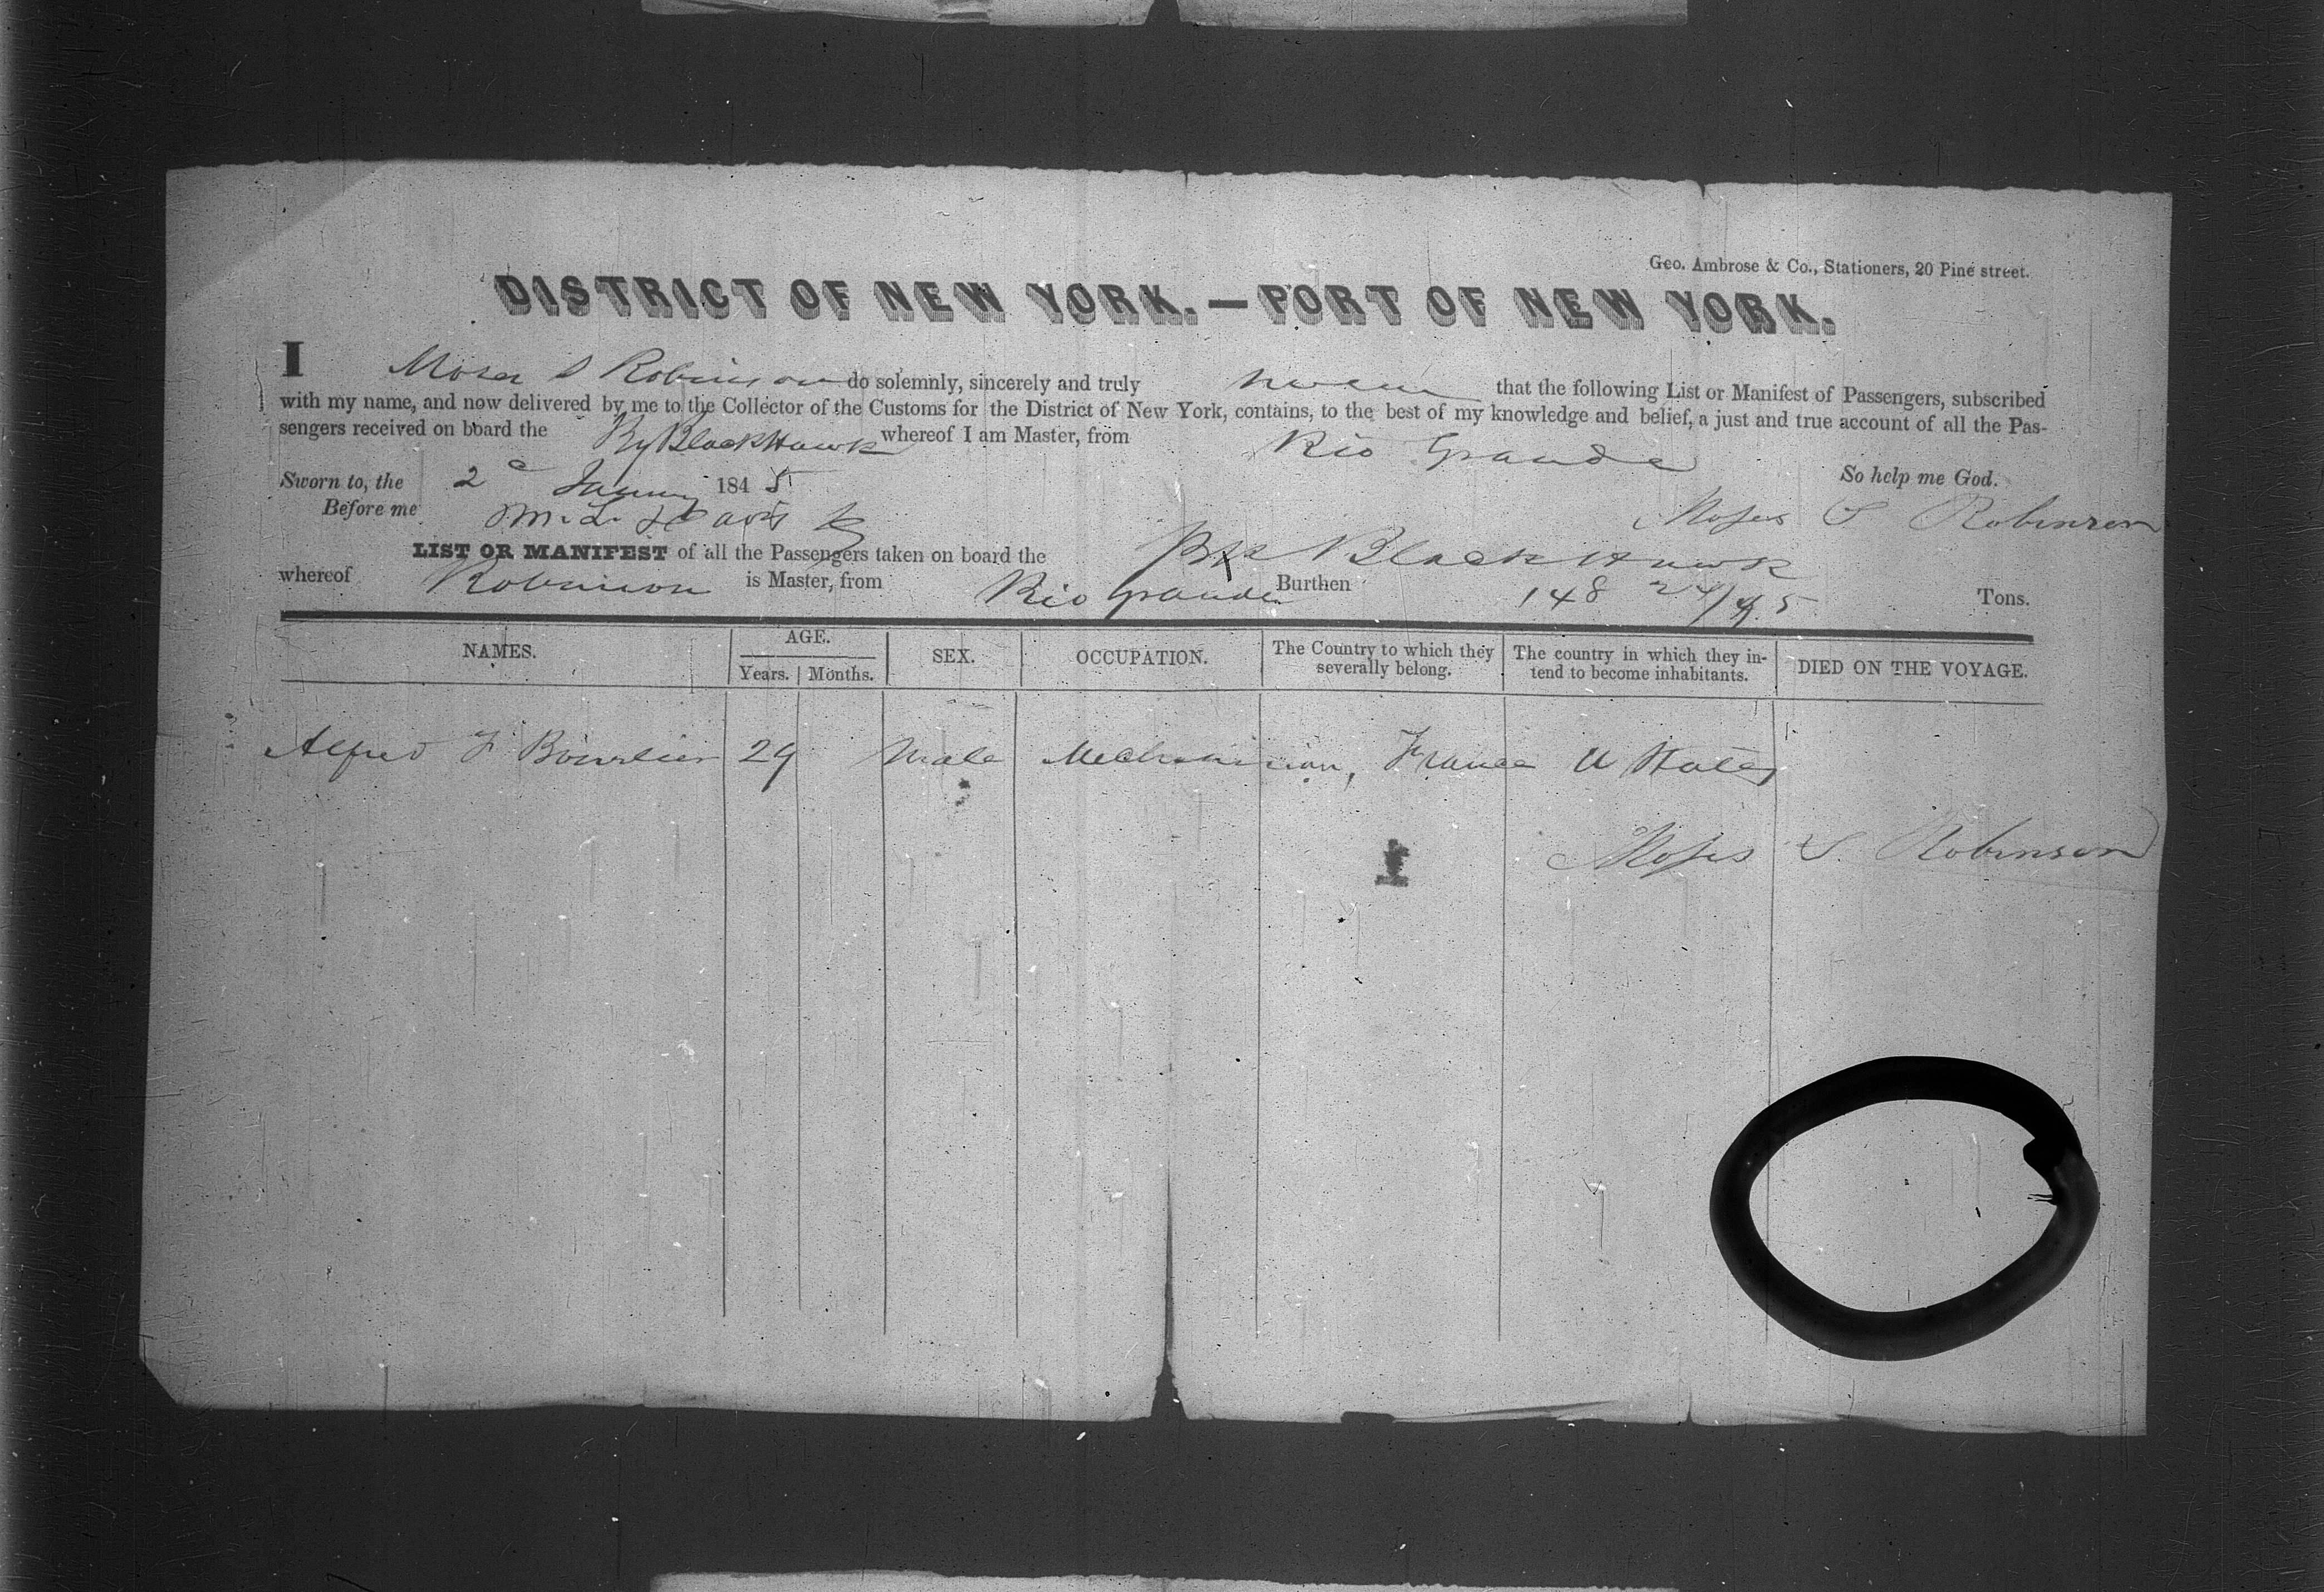 Geo. Ambrose & Co., Stationers, 20 Pine street.
DISTRICT OF NEW YORK.—PORT OF NEW YORK.
I Moses S Robinson do solemnly, sincerely and truly swear that the following List or Manifest of Passengers, subscribed
with my name, and now delivered by me to the Collector of the Customs for the District of New York, contains, to the best of my knowledge and belief, a just and true account of all the Pas-
sengers received on board the Black Hawk whereof I am Master, from Rio Grande
Sworn to, the 2 January 1845 So help me God.
Before me M. L. Davis Moses S Robinson
LIST OR MANIFEST of all the Passengers taken on board the Black Hawk
whereof Robinson is Master, from Rio Grande Burthen 148 24/95 Tons.
NAMES. AGE. Years. Months. SEX. OCCUPATION. The Country to which they severally belong. The country in which they in-tend to become inhabitants. DIED ON THE VOYAGE.
Alfred F Bourlier 29 Male Mechanician, France U States
1 Moses S. Robinson